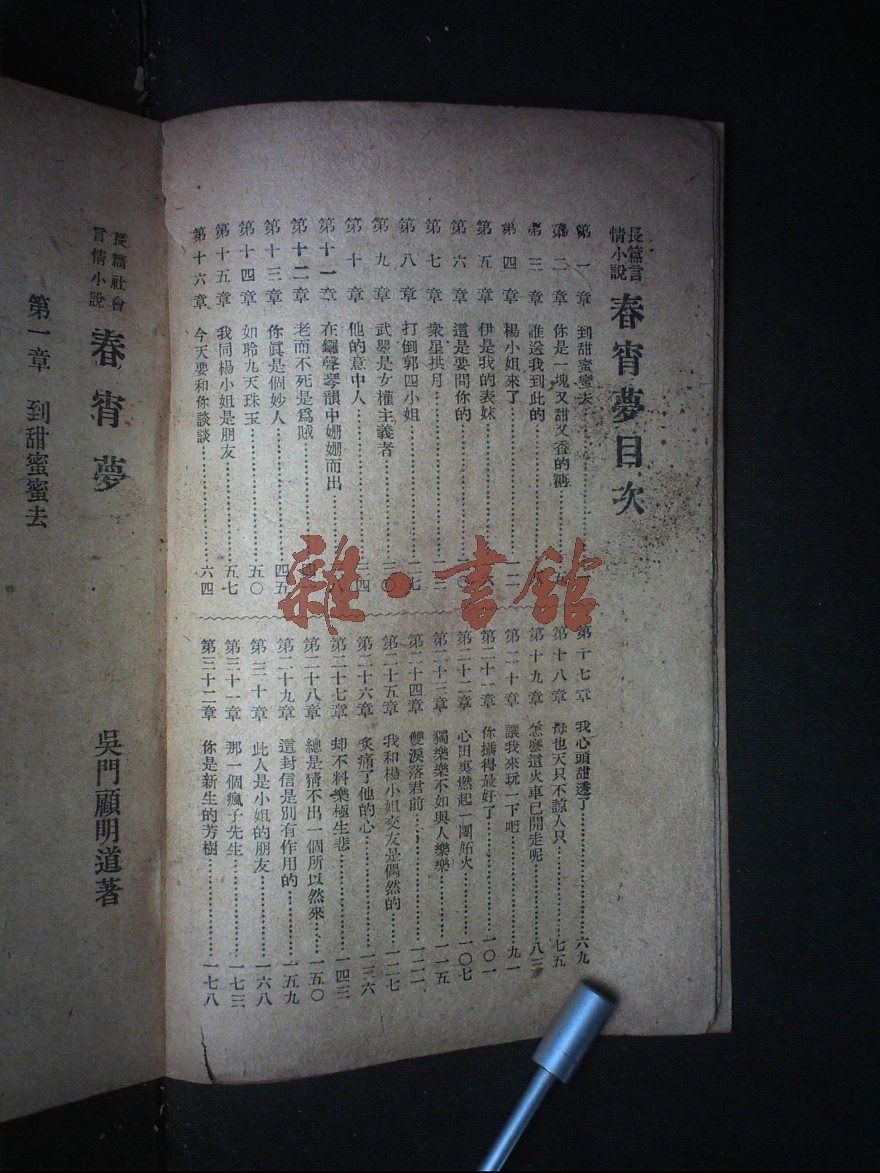 長篇言情小說 春宵夢目次
第一章 到甜蜜蜜去 一
第二章 你是一塊又甜又香的糖
第三章 誰送我到此的
第四章 楊小姐來了 一二
第五章 伊是我的表妹
第六章 這是要問你的
第七章 衆星拱月
第八章 打倒郭四小姐 二七
第九章 武嬰是女權主義者 三〇
第十章 他的意中人 三四
第十一章 在鑼聲琴韻中姍姍而出
第十二章 老而不死是爲賊
第十三章 你眞是個妙人 四五
第十四章 如聆九天珠玉 五〇
第十五章 我同楊小姐是朋友 五七
第十六章 今天要和你談談 六四
第十七章 我心頭甜透了 六九
第十八章 母也天只不諒人只 七五
第十九章 怎麼這火車已開走呢 八三
第二十章 讓我來玩一下吧 九一
第二十一章 你攝得最好了 一〇一
第二十二章 心田裏燃起一團妬火 一〇七
第二十三章 獨樂樂不如與人樂樂 一一五
第二十四章 雙淚落君前 一二二
第二十五章 我和楊小姐交友是偶然的 一二七
第二十六章 炙痛了他的心 一三六
第二十七章 却不料樂極生悲 一四三
第二十八章 總是猜不出一個所以然來 一五〇
第二十九章 這封信是別有作用的 一五九
第三十章 此人是小姐的朋友 一六八
第三十一章 那一個瘋子先生 一七三
第三十二章 你是新生的芳樹 一七八
長篇社會言情小說 春宵夢
吳門顧明道著
第一章 到甜蜜蜜去
雜·書館